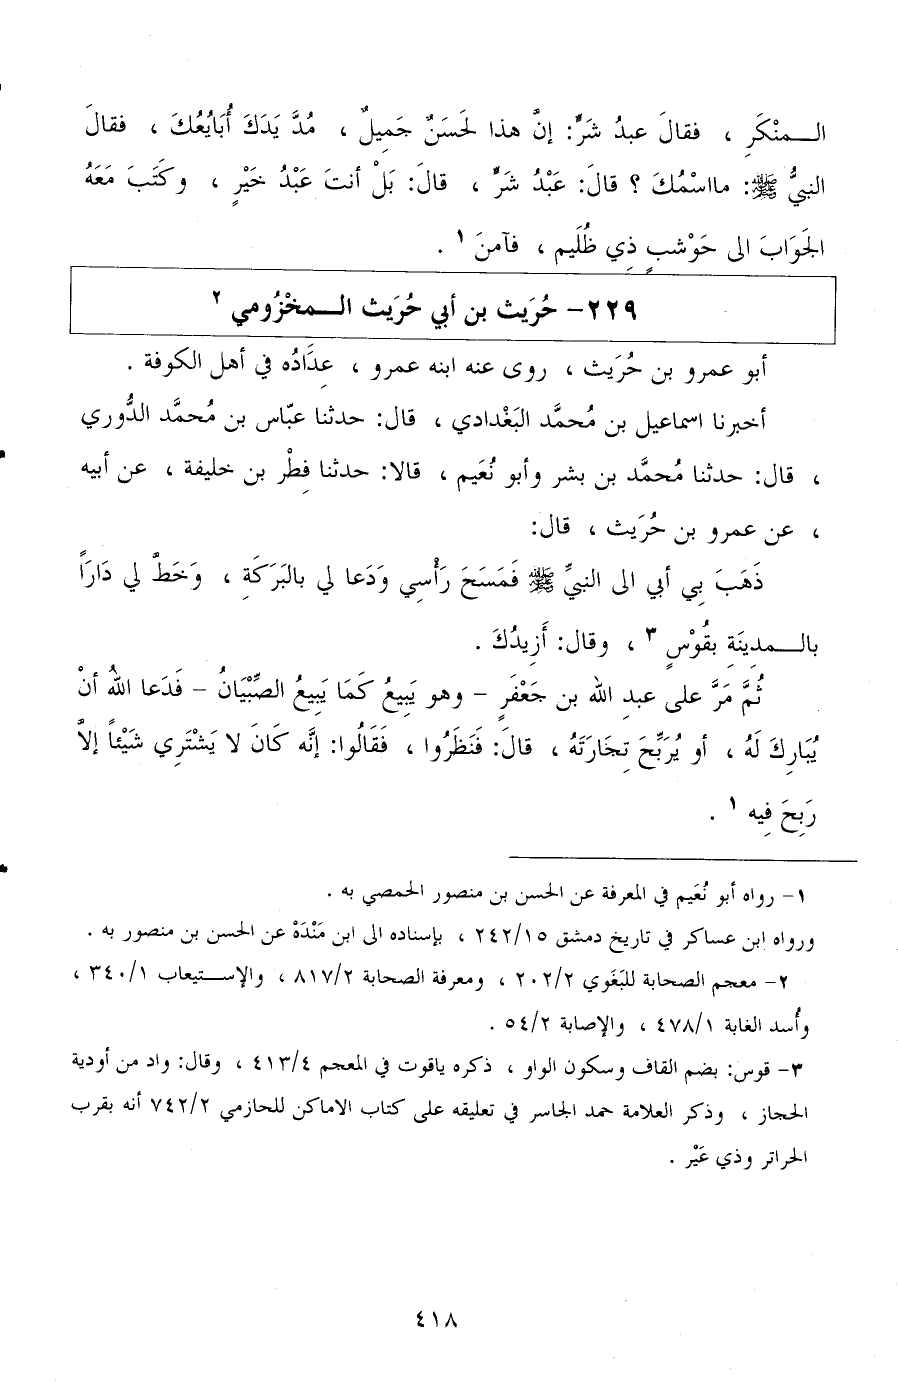 الـــمنْكَرِ ، فقالَ عبدُ شَرٍّ: إنَّ هذا لَحَسَنٌ جَميلٌ ، مُدَّ يَدَكَ أُبَايُعُكَ ، فقالَ
النبيُّ ﷺ: مااسْمُكَ ؟ قالَ: عَبْدُ شَرٍّ ، قالَ: بَلْ أنتَ عَبْدُ خَيْرٍ ، وكَتَبَ مَعَهُ
الجَوَابَ الى حَوْشبٍ ذِي ظُلَيم ، فآمنَ ١ .
٢٢٩- حُرَيث بن أبي حُرَيث الـــمخْزُومي ٢
أبو عمرو بن حُرَيث ، روى عنه ابنه عمرو ، عِدَادُه في أهل الكوفة .
أخبرنا اسماعيل بن مُحمَّد البَغْدادي ، قال: حدثنا عبّاس بن مُحمَّد الدُّوري
، قال: حدثنا مُحمَّد بن بشر وأبو نُعَيم ، قالا: حدثنا فِطْر بن خليفة ، عن أبيه
، عن عمرو بن حُرَيث ، قال:
ذَهَبَ بِي أبي الى النبيِّ ﷺ فَمَسَحَ رَأْسِي وَدَعا لي بالبَرَكَةِ ، وَخَطَّ لي دَارَاً
بالـــمدِينَةِ بقُوْسٍ ٣ ، وقال: أَزِيدُكَ .
ثُمَّ مَرَّ على عبدِ الله بن جَعْفَرٍ – وهو يَبِيعُ كَمَا يَبِيعُ الصِّبْيَانُ – فَدَعا اللهُ أنْ
يُبَارِكَ لَهُ ، أو يُرَبِّحَ تِجَارَتَهُ ، قالَ: فَنَظَرُوا ، فَقَالُوا: إنَّه كَانَ لا يَشْتَرِي شَيْئاً إلاَّ
رَبِحَ فِيه ١ .
١- رواه أبو نُعَيم في المعرفة عن الحسن بن منصور الحمصي به .
ورواه ابن عساكر في تاريخ دمشق ٢٤٢/١٥ ، بإسناده الى ابن مَنْدَهْ عن الحسن بن منصور به .
٢- معجم الصحابة للبَغَوي ٢٠٢/٢ ، ومعرفة الصحابة ٨١٧/٢ ، والإســتيعاب ٣٤٠/١ ،
وأُسد الغابة ٤٧٨/١ ، والإصابة ٥٤/٢ .
٣- قوس: بضم القاف وسكون الواو ، ذكره ياقوت في المعجم ٤١٣/٤ ، وقال: واد من أودية
الحجاز ، وذكر العلامة حمد الجاسر في تعليقه على كتاب الاماكن للحازمي ٧٤٢/٢ أنه بقرب
الحراتر وذي عَيْر .
٤١٨